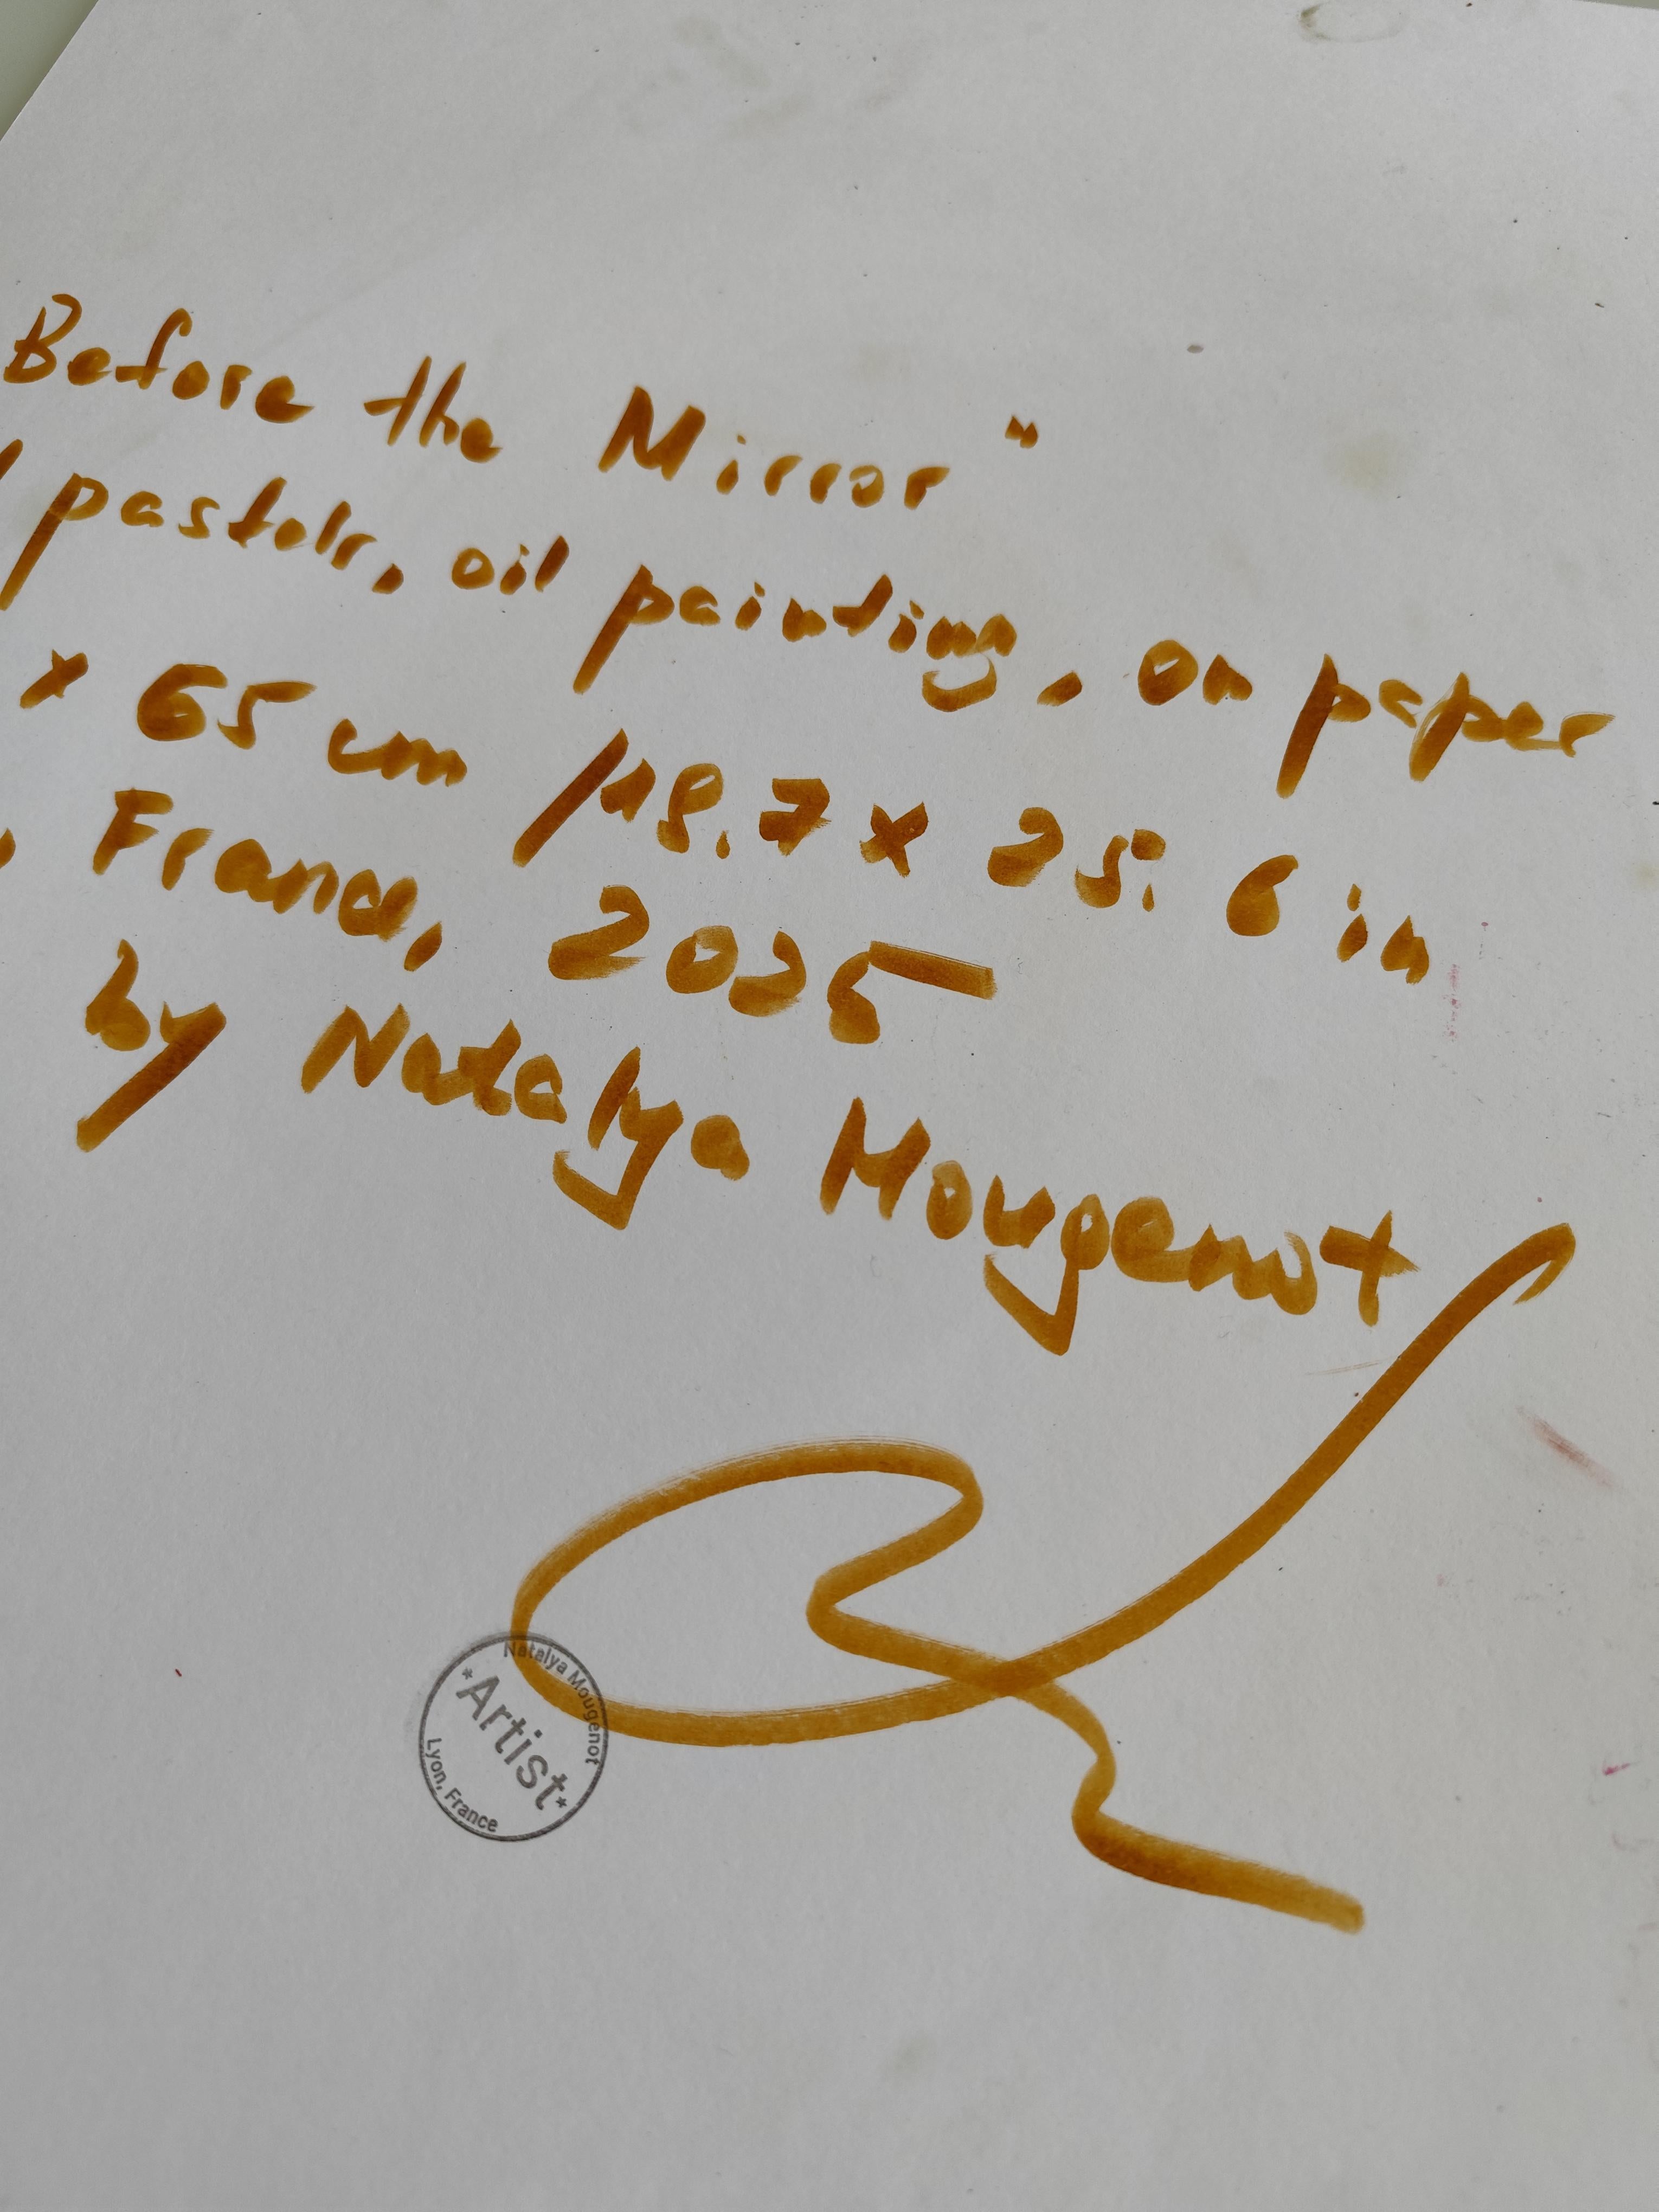 Before the Mirror"
pastels, oil painting, on paper
x 65 cm / 19.7 x 25.6 in
France, 2025
by Natalya Mougenot
Natalya Mougenot
*Artist*
Lyon, France